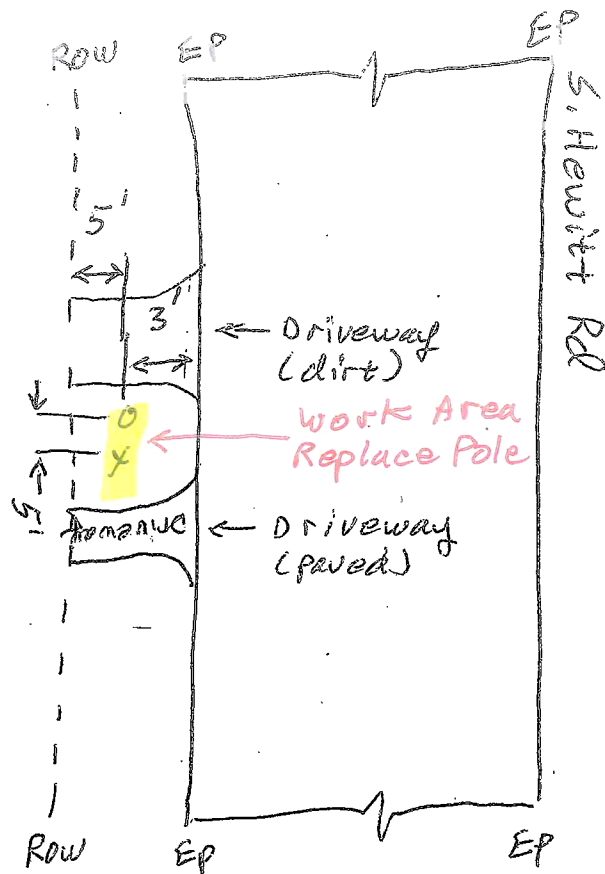 ROW
EP
EP
S. Hewitt Rd
5'
3'
Driveway
(dirt)
O
X
Work Area
Replace Pole
5'
Driveway
(paved)
ROW
EP
EP